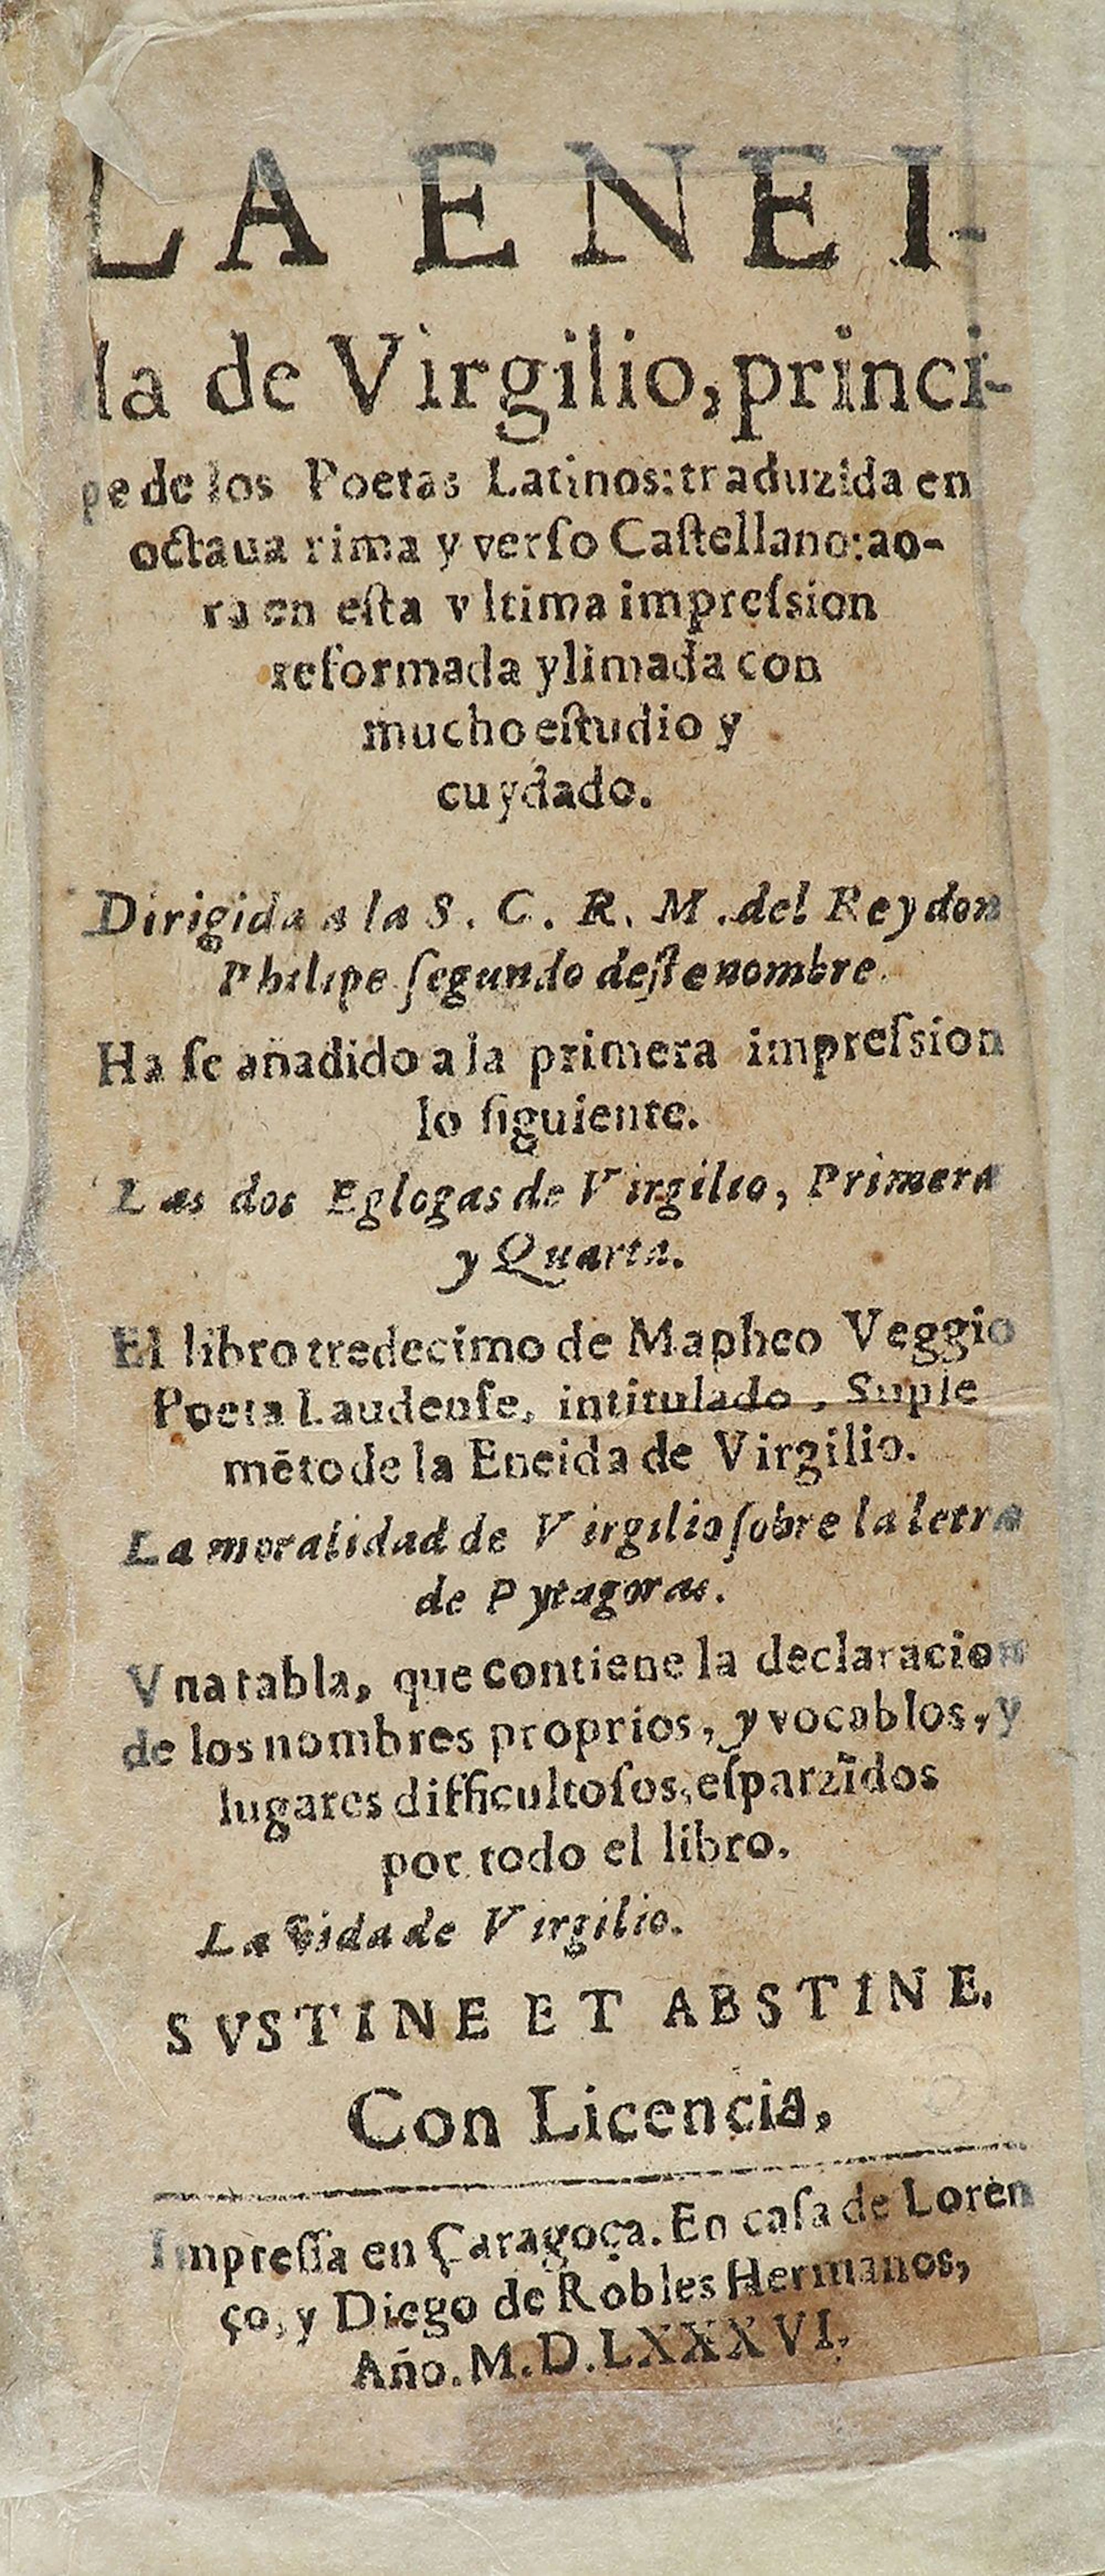 LA ENEI-
da de Virgilio, princi-
pe de los Poetas Latinos: traduzida en
octaua rima y verſo Caſtellano: ao-
ra en eſta vltima impreſsion
reformada y limada con
mucho eſtudio y
cuydado.
Dirigida a la S. C. R. M. del Rey don
Philipe ſegundo deſte nombre.
Ha ſe añadido a la primera impreſsion
lo ſiguiente.
Las dos Eglogas de Virgilio, Primera
y Quarta.
El libro tredecimo de Mapheo Veggio
Poeta Laudenſe, intitulado, Suple
mēto de la Eneida de Virgilio.
La moralidad de Virgilio ſobre la letra
de Pytagoras.
Vna tabla, que contiene la declaracion
de los nombres proprios, y vocablos, y
lugares difficultoſos, eſparzidos
por todo el libro.
La vida de Virgilio.
SVSTINE ET ABSTINE.
Con Licencia,
Impreſſa en Çaragoça. En caſa de Loren
ço, y Diego de Robles Hermanos,
Año. M.D.LXXXVI.